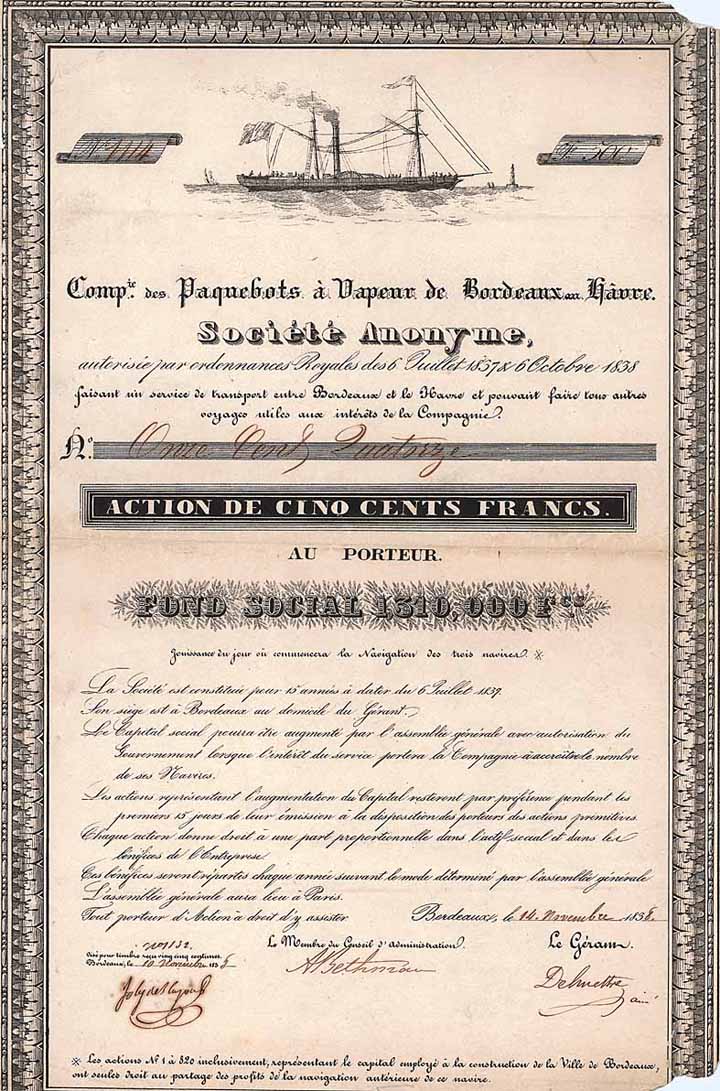 Nº 1114
F. 500
Comp.ie des Paquebots à Vapeur de Bordeaux au Hâvre.
Société Anonyme,
autorisée par ordonnances Royales des 6 Juillet 1837 & 6 Octobre 1838
faisant un service de transport entre Bordeaux et le Havre et pouvant faire tous autres
voyages utiles aux intérêts de la Compagnie.
Nº. Onze Cent Quatorze
ACTION DE CINQ CENTS FRANCS.
AU PORTEUR.
FOND SOCIAL 1310,000 F.cs
Jouissance du jour où commencera la Navigation des trois navires. ※
La Société est constituée pour 15 années à dater du 6 Juillet 1837.
Son siège est à Bordeaux au domicile du Gérant.
Le Capital social pourra être augmenté par l'assemblée générale avec autorisation du
Gouvernement lorsque l'intérêt du service portera la Compagnie à accroître le nombre
de ses Navires.
Les actions représentant l'augmentation du Capital resteront par préférence pendant les
premiers 15 jours de leur émission à la disposition des porteurs des actions primitives.
Chaque action donne droit à une part proportionnelle dans l'actif social et dans les
bénéfices de l'Entreprise.
Ces bénéfices seront répartis chaque année suivant le mode déterminé par l'assemblée générale
L'assemblée générale aura lieu à Paris.
Tout porteur d'Action a droit d'y assister
Bordeaux, le 14. Novembre 1838.
nº 1132.
Visé pour timbre reçu vingt cinq centimes.
Bordeaux, le 10 Novembre 1838
Le Membre du Conseil d'Administration.
ABethmann
Le Gérant.
Delmestre ainé
※ Les actions Nº 1 à 820 inclusivement, représentant le capital employé à la construction de la Ville de Bordeaux,
ont seules droit au partage des profits de la navigation antérieure de ce navire.